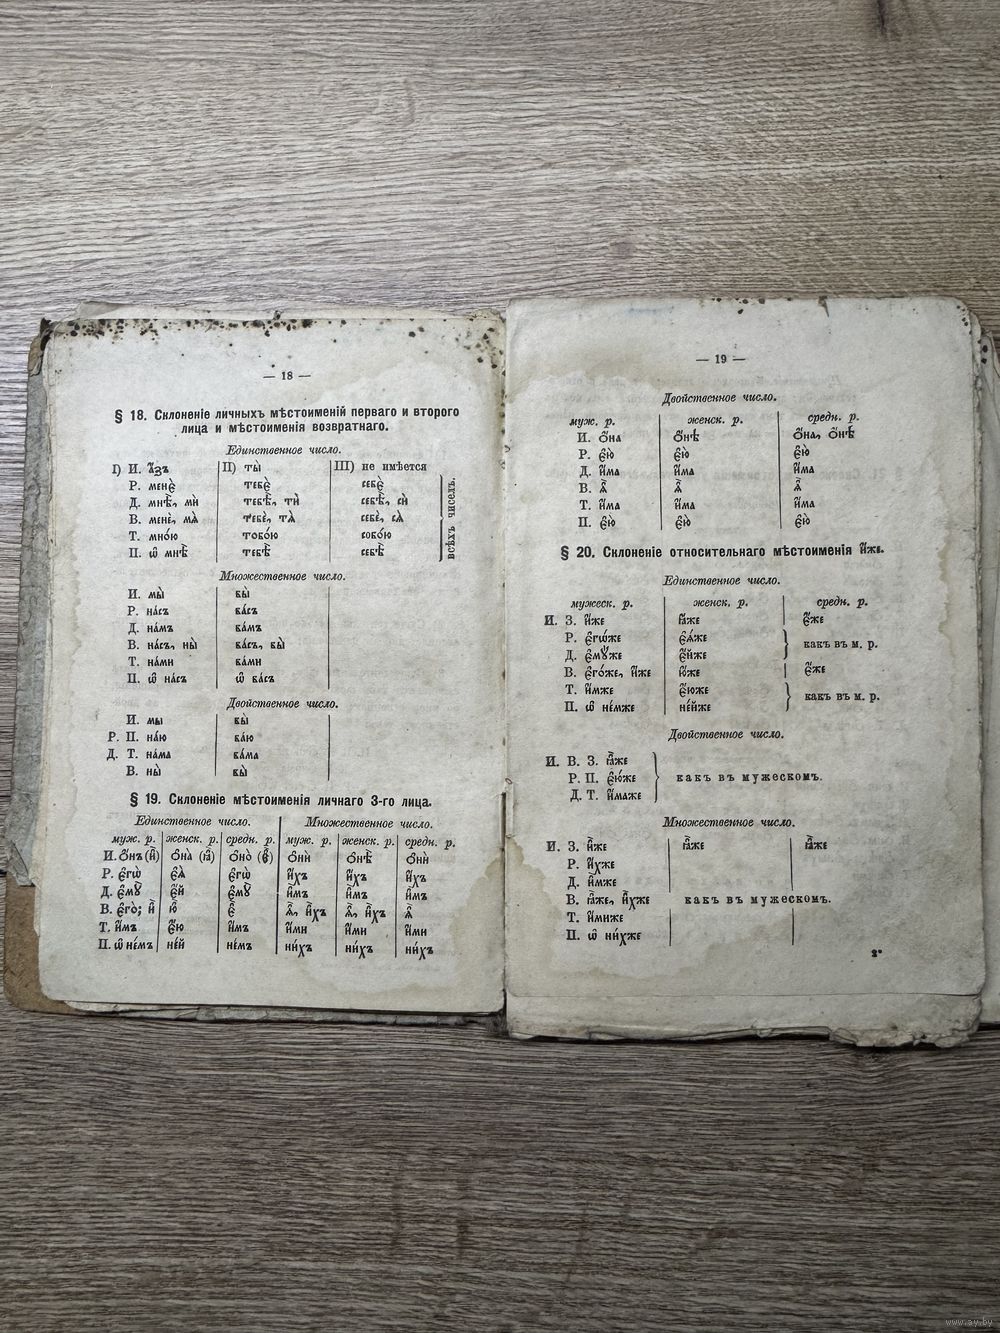 — 18 —
§ 18. Склоненіе личныхъ мѣстоименій перваго и второго
лица и мѣстоименія возвратнаго.
Единственное число.
I) И. а҆́зъ II) ты̀ III) не имѣется
Р. менє̀ тебє̀ себє̀
Д. мнѣ̀, мѝ тебѣ̀, тѝ себѣ̀, сѝ
В. менѐ, мѧ̀ тебѐ, тѧ̀ себѐ, сѧ̀
Т. мно́ю тобо́ю собо́ю
П. ѡ҆ мнѣ̀ тебѣ̀ себѣ̀
всѣхъ чиселъ.
Множественное число.
И. мы̀ вы̀
Р. на́съ ва́съ
Д. на́мъ ва́мъ
В. на́съ, ны̀ ва́съ, вы̀
Т. на́ми ва́ми
П. ѡ҆ на́съ ѡ҆ ва́съ
Двойственное число.
И. мы вы̀
Р. П. на́ю ва́ю
Д. Т. на́ма ва́ма
В. ны̀ вы̀
§ 19. Склоненіе мѣстоименія личнаго 3-го лица.
Единственное число. Множественное число.
муж. р. женск. р. средн. р. муж. р. женск. р. средн. р.
И. ѻ҆́нъ (и҆̀) ѻ҆на̀ (ꙗ҆̀) ѻ҆но̀ (є҆̀) ѻ҆нѝ ѻ҆нѣ̀ ѻ҆нѝ
Р. є҆гѡ̀ є҆ѧ̀ є҆гѡ̀ и҆́хъ и҆́хъ и҆́хъ
Д. є҆мꙋ̀ є҆́й є҆мꙋ̀ и҆̀мъ и҆́мъ и҆̀мъ
В. є҆го̀; и҆̀ ю҆̀ є҆̀ ѧ҆̀, и҆̀хъ ѧ҆̀, и҆̀хъ ѧ҆̀
Т. и҆́мъ є҆́ю и҆́мъ и҆́ми и҆́ми и҆́ми
П. ѡ҆ не́мъ не́й не́мъ ни́хъ ни́хъ ни́хъ
— 19 —
Двойственное число.
муж. р. женск. р. средн. р.
И. ѻ҆́на ѻ҆́нѣ ѻ҆́на, ѻ҆́нѣ
Р. є҆ю̀ є҆ю̀ є҆ю̀
Д. и҆́ма и҆́ма и҆́ма
В. ѧ҆̀ ѧ҆̀ ѧ҆̀
Т. и҆́ма и҆́ма и҆́ма
П. є҆ю̀ є҆ю̀ є҆ю̀
§ 20. Склоненіе относительнаго мѣстоименія и҆́же.
Единственное число.
мужеск. р. женск. р. средн. р.
И. З. и҆́же ꙗ҆́же є҆́же
Р. є҆гѡ́же є҆ѧ́же какъ въ м. р.
Д. є҆мꙋ́же є҆́йже
В. є҆го́же, и҆́же ю҆́же є҆́же
Т. и҆́мже є҆́юже какъ въ м. р.
П. ѡ҆ не́мже не́йже
Двойственное число.
И. В. З. ꙗ҆̀же
Р. П. є҆ю́же какъ въ мужескомъ.
Д. Т. и҆́маже
Множественное число.
И. З. и҆̀же ꙗ҆̀же ꙗ҆̀же
Р. и҆́хже
Д. и҆̀мже
В. ꙗ҆̀же, и҆̀хже какъ въ мужескомъ.
Т. и҆́миже
П. ѡ҆ ни́хже
2*
www.ay.by